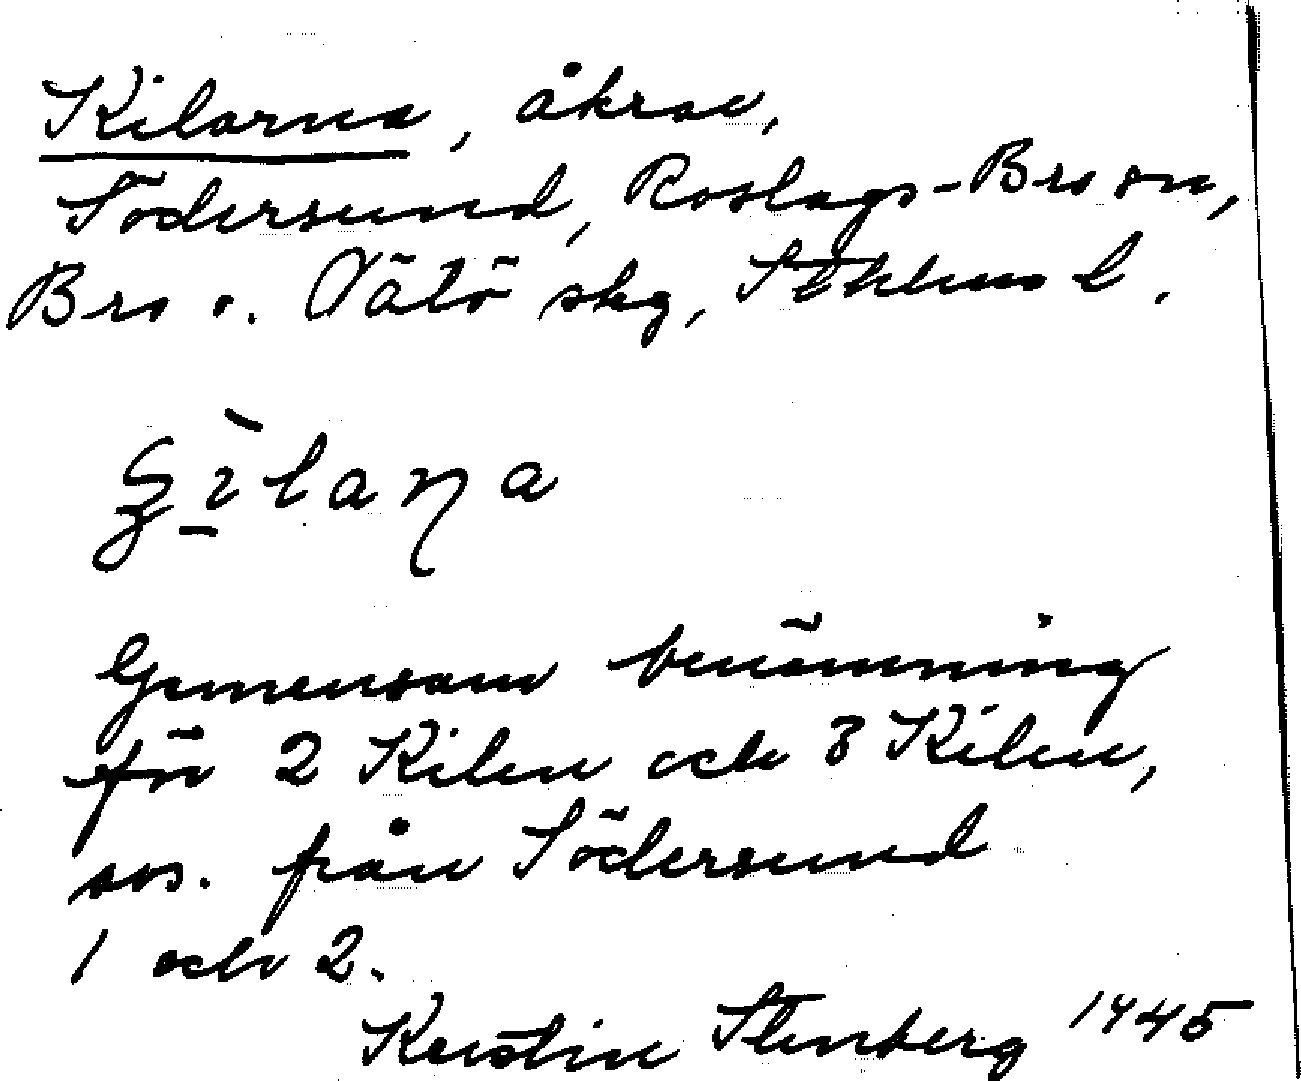 Kilarna, åkrar,
Södersund, Roslags-Bro sn,
Bro o. Vätö skg, Sthlms l.
Gemensam benämning
för 2 Kilen och 3 Kilen,
sos. från Södersund
1 och 2.
Kerstin Stenberg 1945